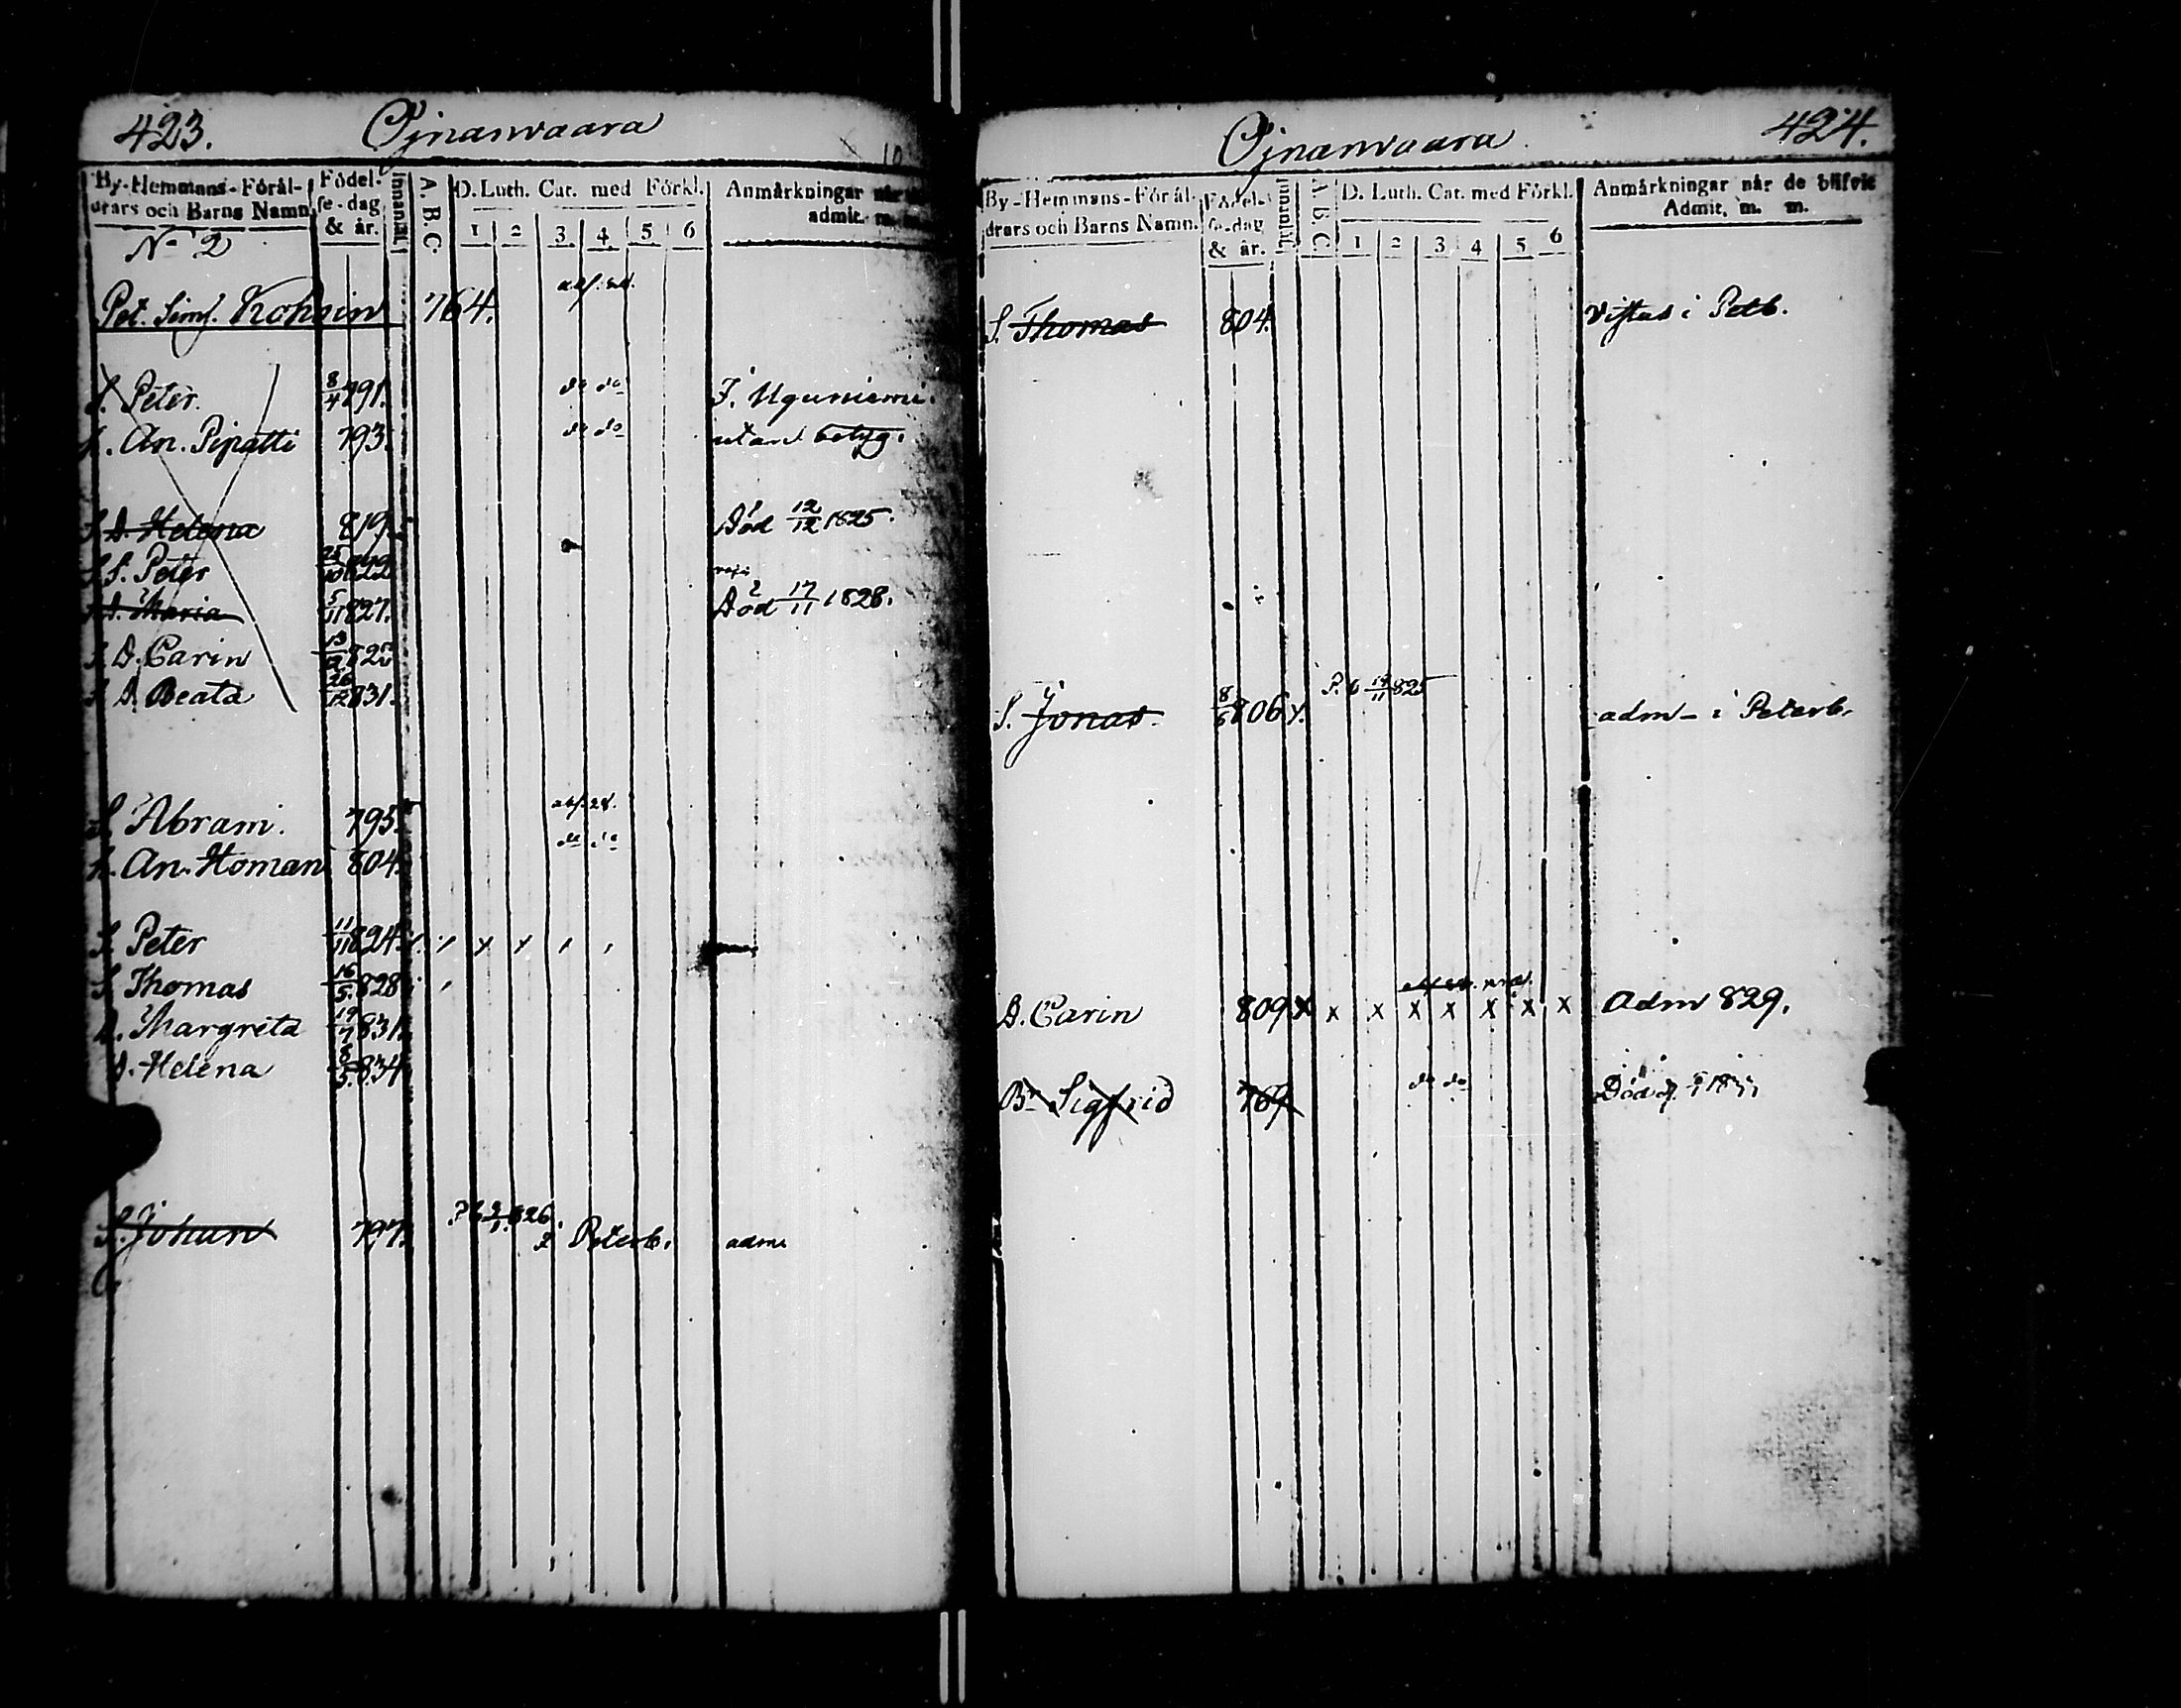 423. Ojnanvaara
By-Hemmans-Föräl-
drars och Barns Namn
Födel-
se-dag
& år.
Innanläs
A. B. C.
D. Luth. Cat. med Förkl.
1 2 3 4 5 6
Anmärkningar när
admit. m.
No 2
Pet. Sims. Kohnin 764.
S. Peter. 8/4 791. do do I Uguniemi.
H. An. Pipatti 793. do do utan betyg.
S D. Helena 819. Död 12/12 1825.
S S. Peter 25/10 822
S D. Maria 5/11 827. Död 17/11 1828.
S D. Carin 825
S D. Beata 26/12 831.
S. Abram. 795.
H. An. Homan 804. do do
S. Peter 11/11 824.
S. Thomas 16/5. 828
D. Margreta 19/7 831.
D. Helena 8/5. 834
S. Johan 797. 826. Peterb. adm.
Ojnanvaara 424.
By-Hemmans-Föräl-
drars och Barns Namn.
Födel-
se-dag
& år.
A. B. C.
D. Luth. Cat. med Förkl.
1 2 3 4 5 6
Anmärkningar när de blifvit
Admit. m. m.
S. Thomas 804. Vistas i Petb.
S. Jonas. 8/6 806 x. P. b 19/11 825 adm- i Peterb.
D. Carin 809 x x x x x x x x Adm 829.
Br Sigfrid 769 do do Död